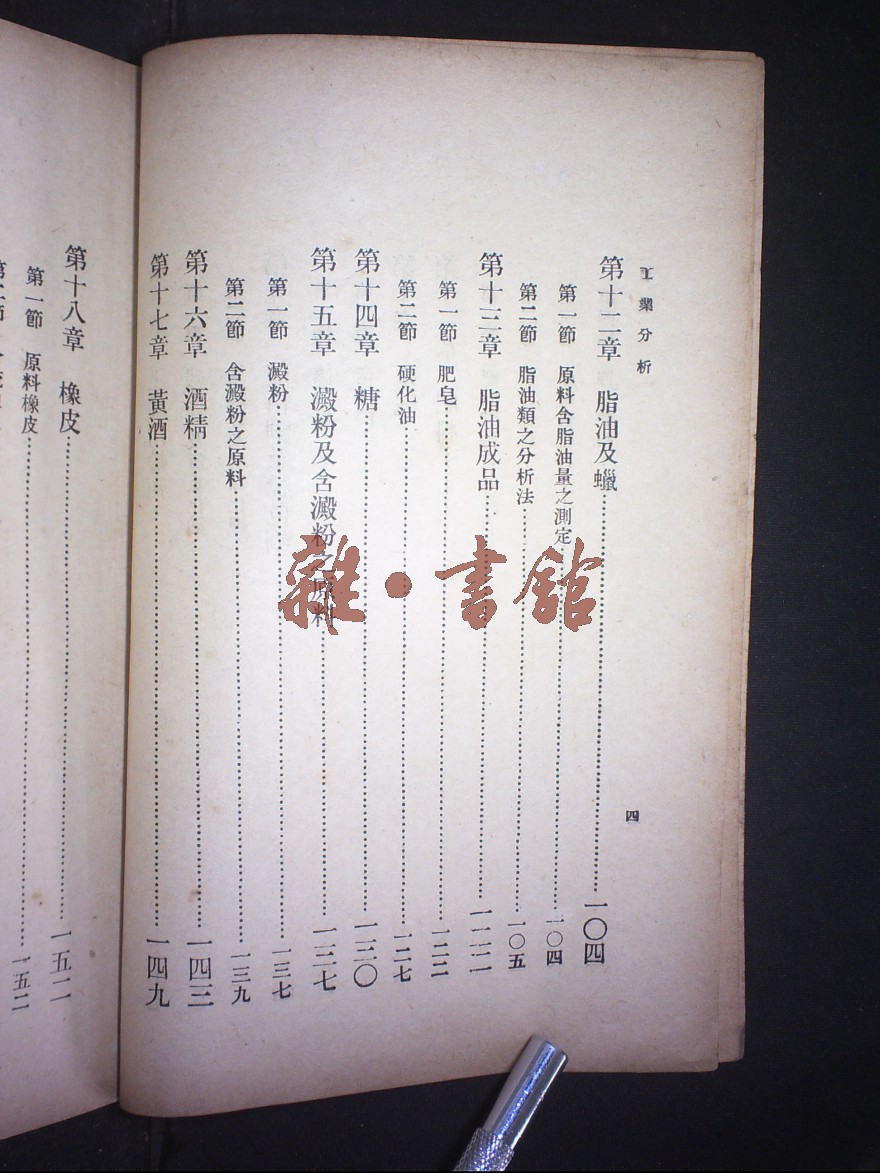 工業分析
四
第十二章 脂油及蠟……一〇四
第一節 原料含脂油量之測定……一〇四
第二節 脂油類之分析法……一〇五
第十三章 脂油成品……一二二
第一節 肥皂……一二二
第二節 硬化油……一二七
第十四章 糖……一三〇
第十五章 澱粉及含澱粉之原料……一三七
第一節 澱粉……一三七
第二節 含澱粉之原料……一三九
第十六章 酒精……一四三
第十七章 黃酒……一四九
第十八章 橡皮……一五二
第一節 原料橡皮……一五二
雜·書館